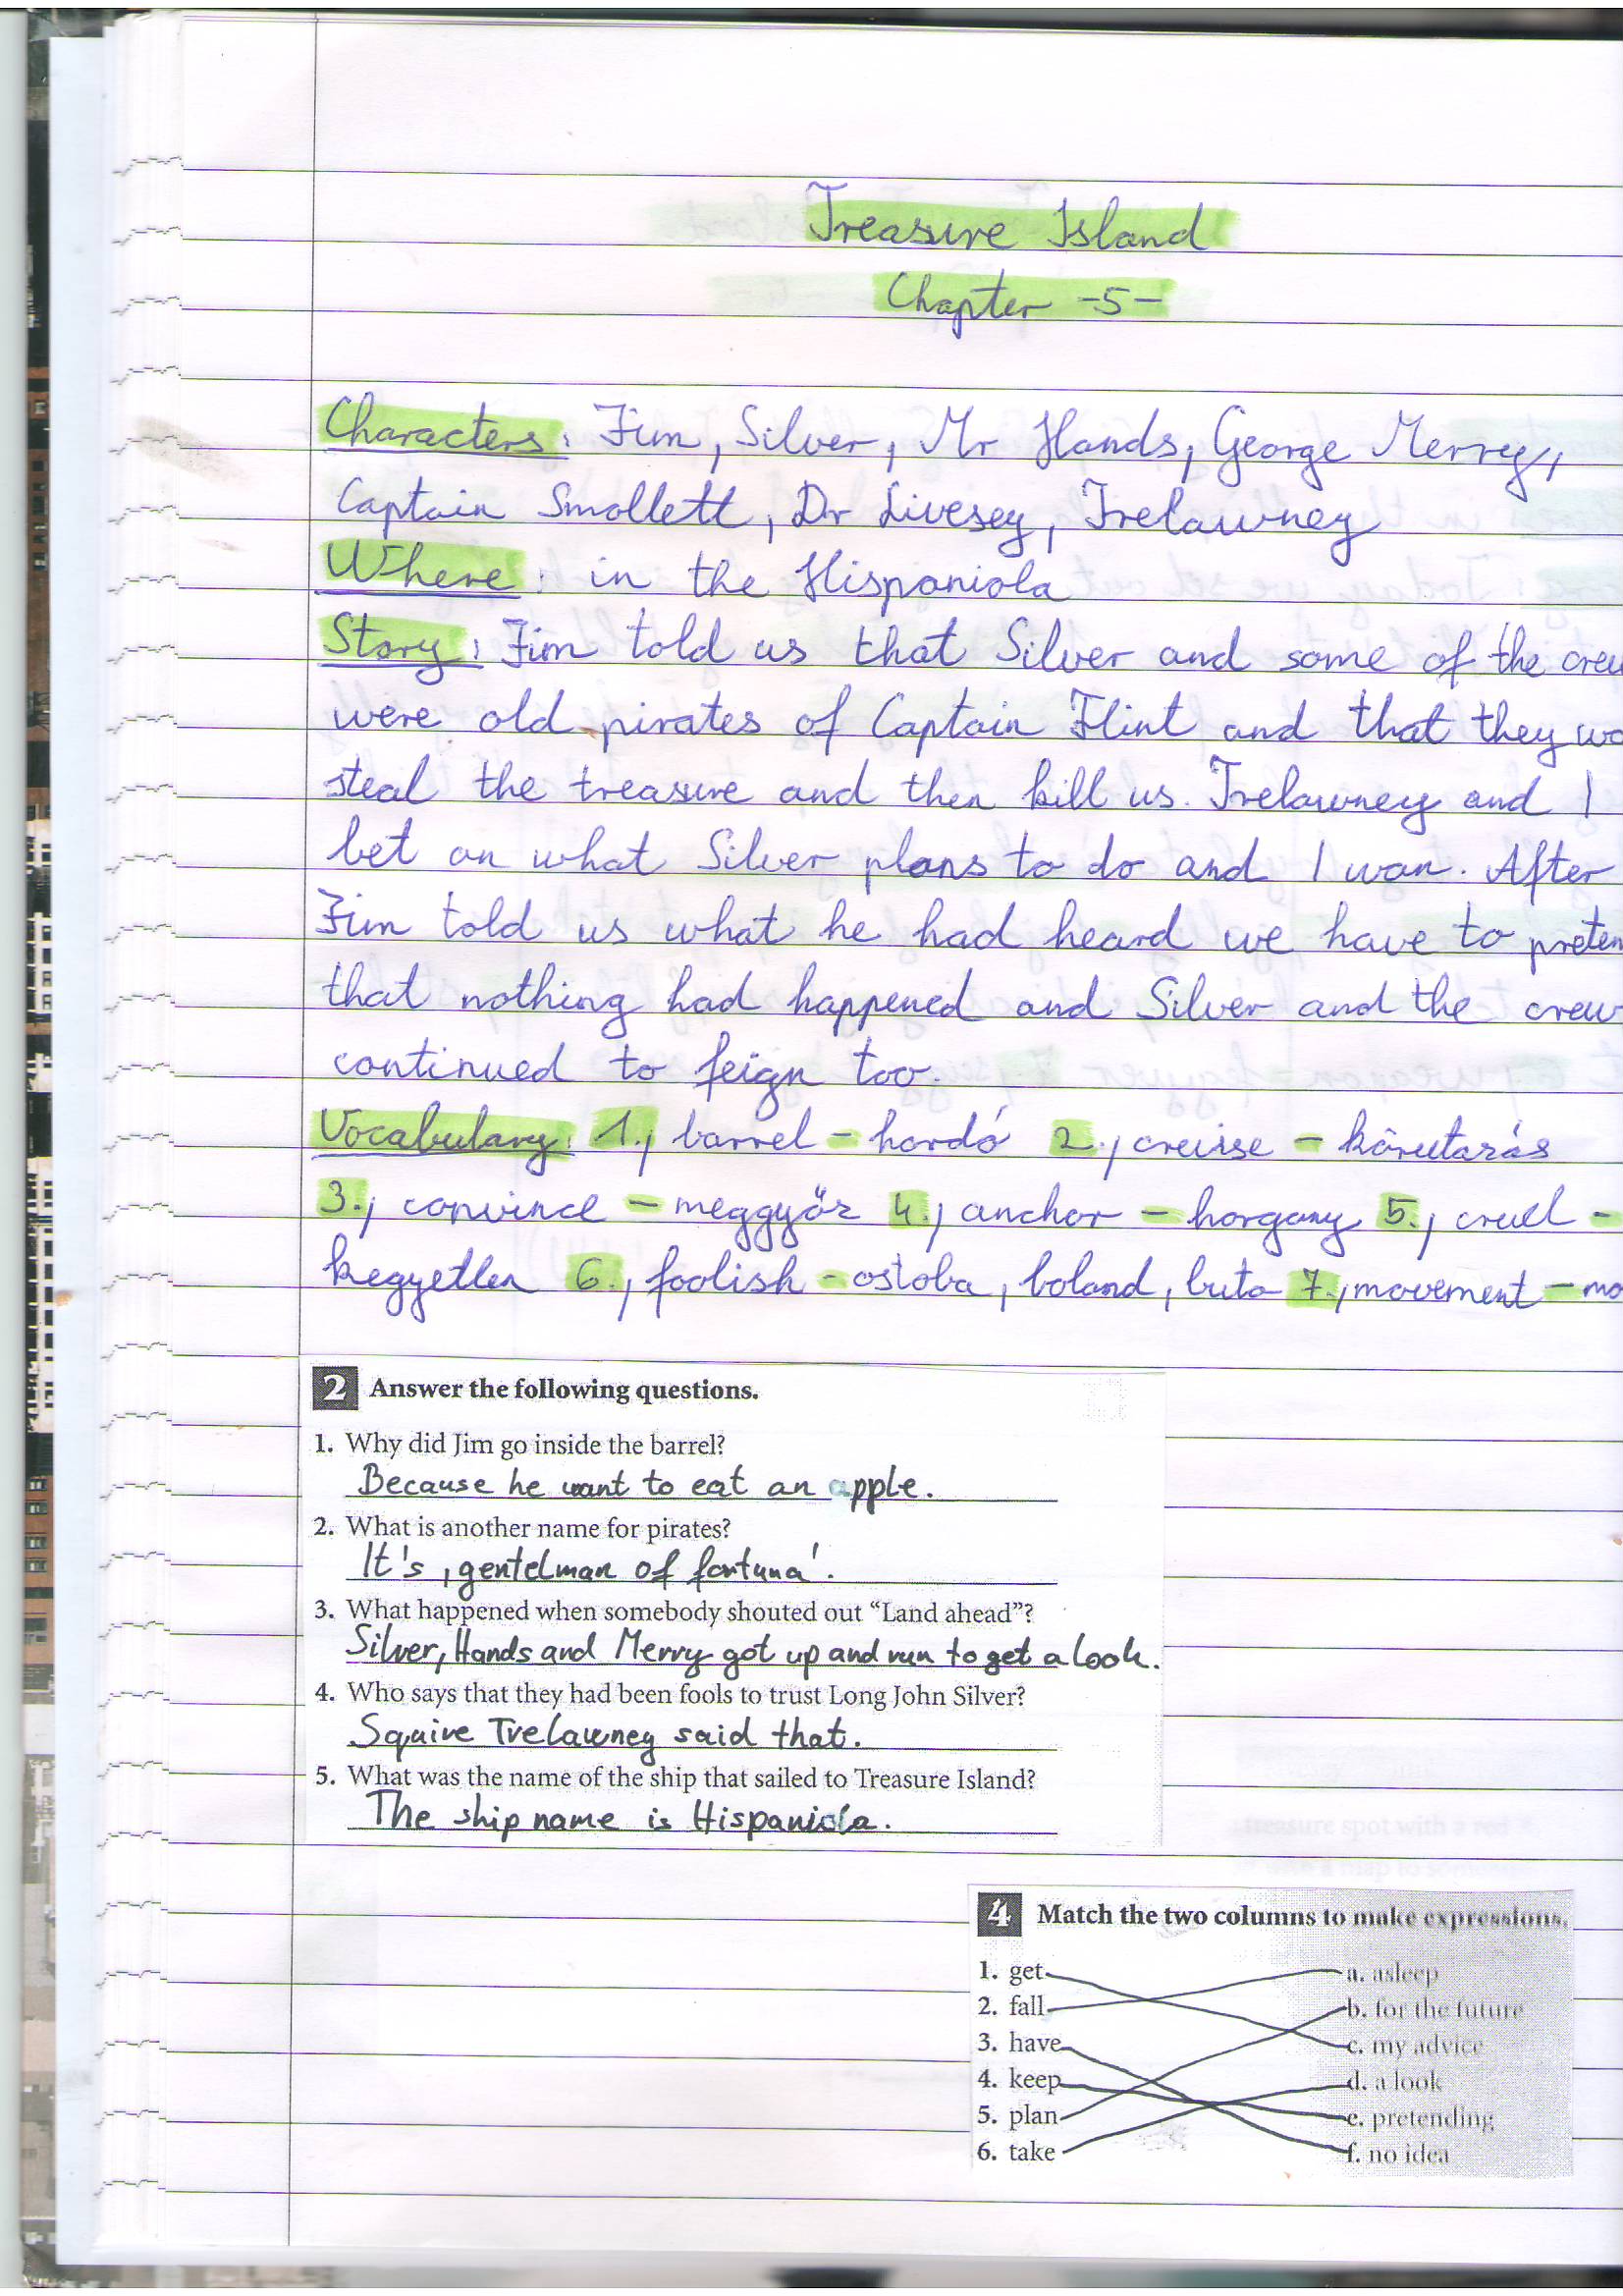 Treasure Island
Chapter -5-
Characters: Jim, Silver, Mr Hands, George Merrey,
Captain Smollett, Dr Livesey, Trelawney
Where: in the Hispaniola
Story: Jim told us that Silver and some of the crew
were old pirates of Captain Flint and that they
steal the treasure and then kill us. Trelawney and I
bet on what Silver plans to do and I won. After
Jim told us what he had heard we have to preten
that nothing had happened and Silver and the crew
continued to feign too.
Vocabulary: 1., barrel - hordó 2., creuise - körutazás
3., convince - meggyőz 4., anchor - horgony 5., cruel -
kegyetlen 6., foolish - ostoba, boland, buta 7., movement - mo
2 Answer the following questions.
1. Why did Jim go inside the barrel?
Because he want to eat an apple.
2. What is another name for pirates?
It's ,gentelman of fortuna'.
3. What happened when somebody shouted out "Land ahead"?
Silver, Hands and Merry got up and run to get a look.
4. Who says that they had been fools to trust Long John Silver?
Squire Trelawney said that.
5. What was the name of the ship that sailed to Treasure Island?
The ship name is Hispaniola.
4 Match the two columns to make expressions.
1. get a. asleep
2. fall b. for the future
3. have c. my advice
4. keep d. a look
5. plan e. pretending
6. take f. no idea